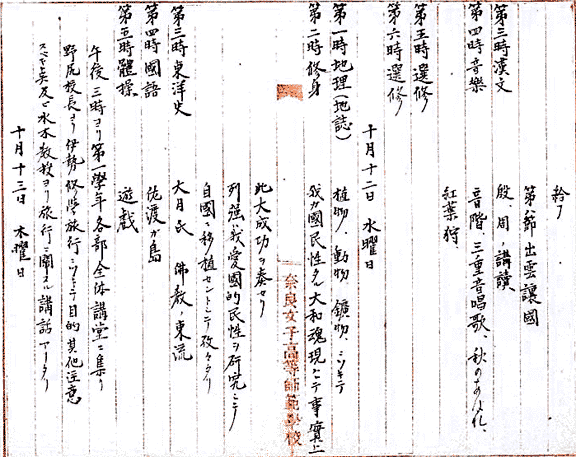 終リ
第三時漢文 第一節 出雲讓國
殷、周ノ講讀
第四時音樂 音階、三重音唱歌、秋のあはれ、
紅葉狩
第五時選修
第六時選修
十月十二日 水曜日
第一時地理(地誌) 植物、動物、鑛物、ニツキテ
第二時修身 我ガ國民性タル大和魂現ハシテ事實上
奈良女子高等師範學校
此大成功ヲ奏セリ
列强ハ我愛國的民性ヲ研究シテ
自國ニ移植セントシテ孜々タリ
第三時東洋史 大月氏 佛教ノ東流
第四時國語 佐渡が島
第五時體操 遊戯
午後三時ヨリ第一學年各部全体講堂ニ集リ
野尻校長ヨリ伊勢修學旅行ニツキテ目的其他注意
スベキ矣及ビ水木教授ヨリ旅行ニ關スル講話アータリ
十月十三日 木曜日